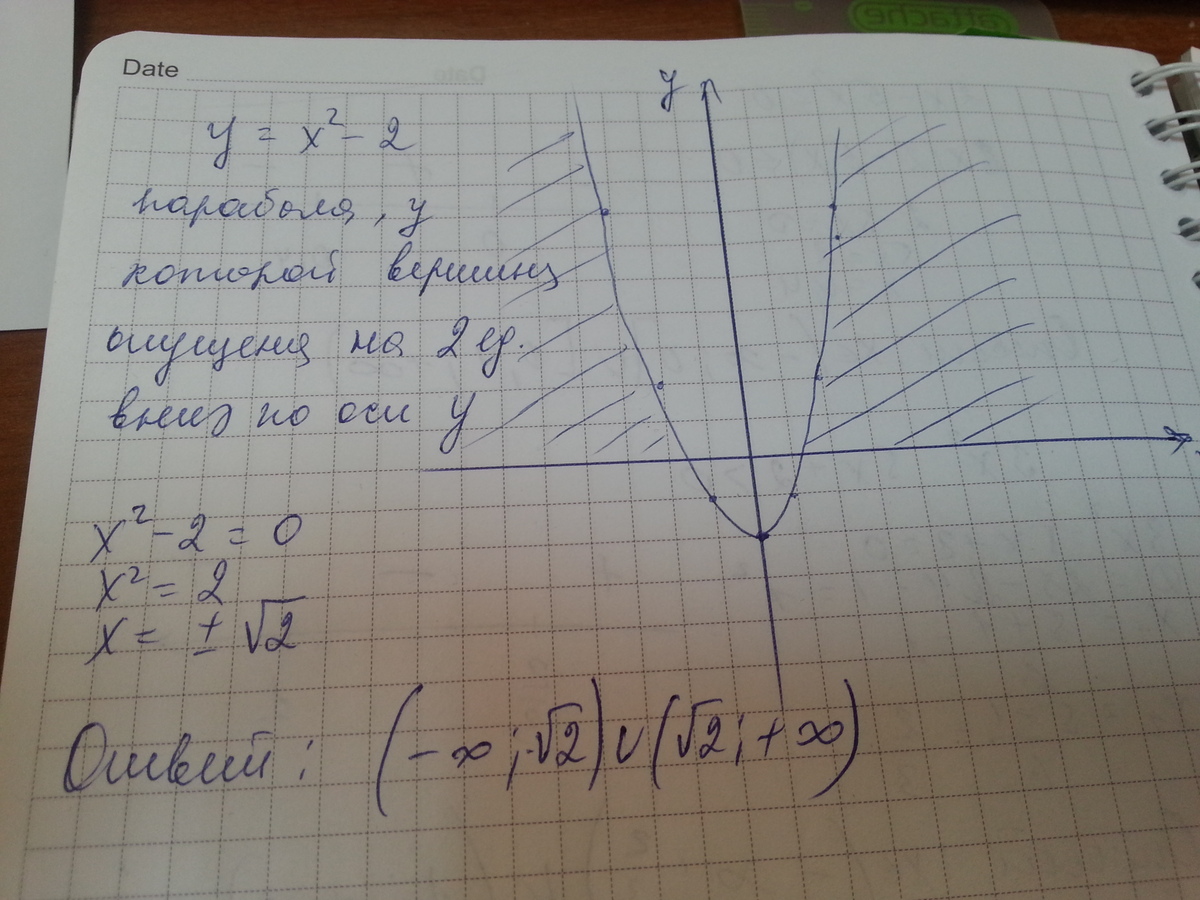 attache
Date
y = x² - 2
парабола, у
которой вершина
опущена на 2 ед.
вниз по оси y
x² - 2 = 0
x² = 2
x = ± √2
Ответ: (-∞; -√2) ∪ (√2; +∞)
y
x